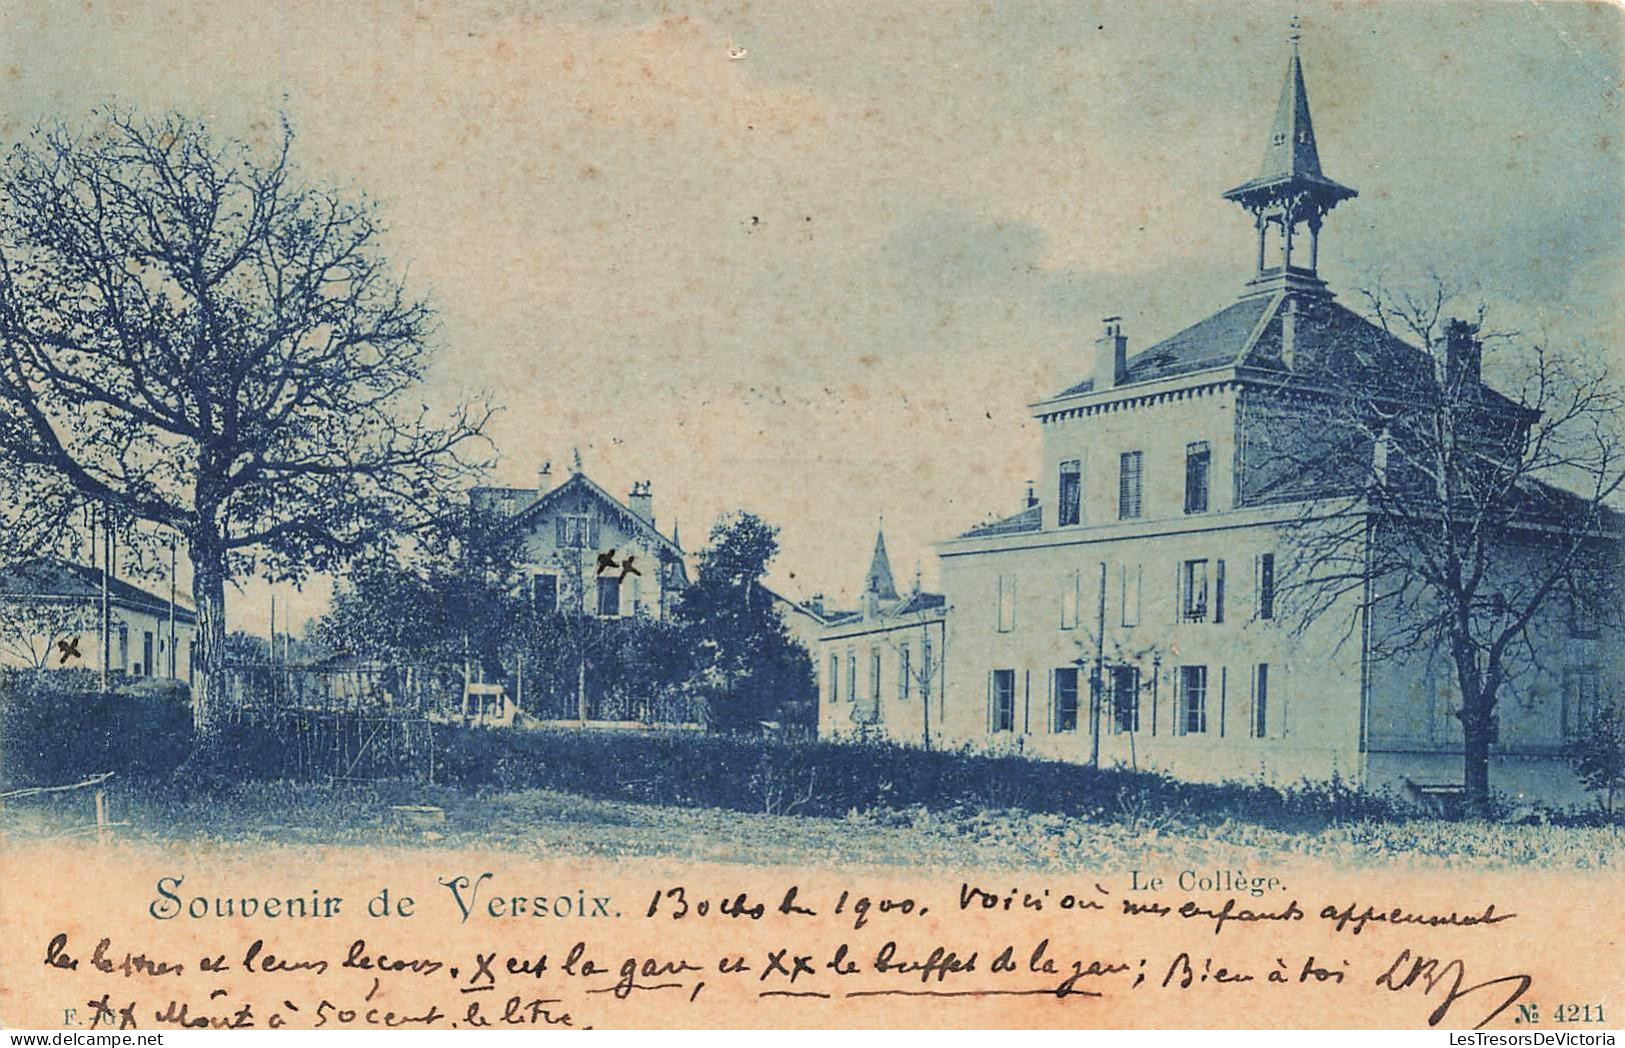 Le Collège.
Souvenir de Versoix. 13 octobre 1900. Voici où mes enfants apprennent
les lettres et leurs leçons. X est la gare, et XX le buffet de la gare; Bien à toi
F. G XX Moût à 50 cent. le litre.
№ 4211
LesTresorsDeVictoria
www.delcampe.net